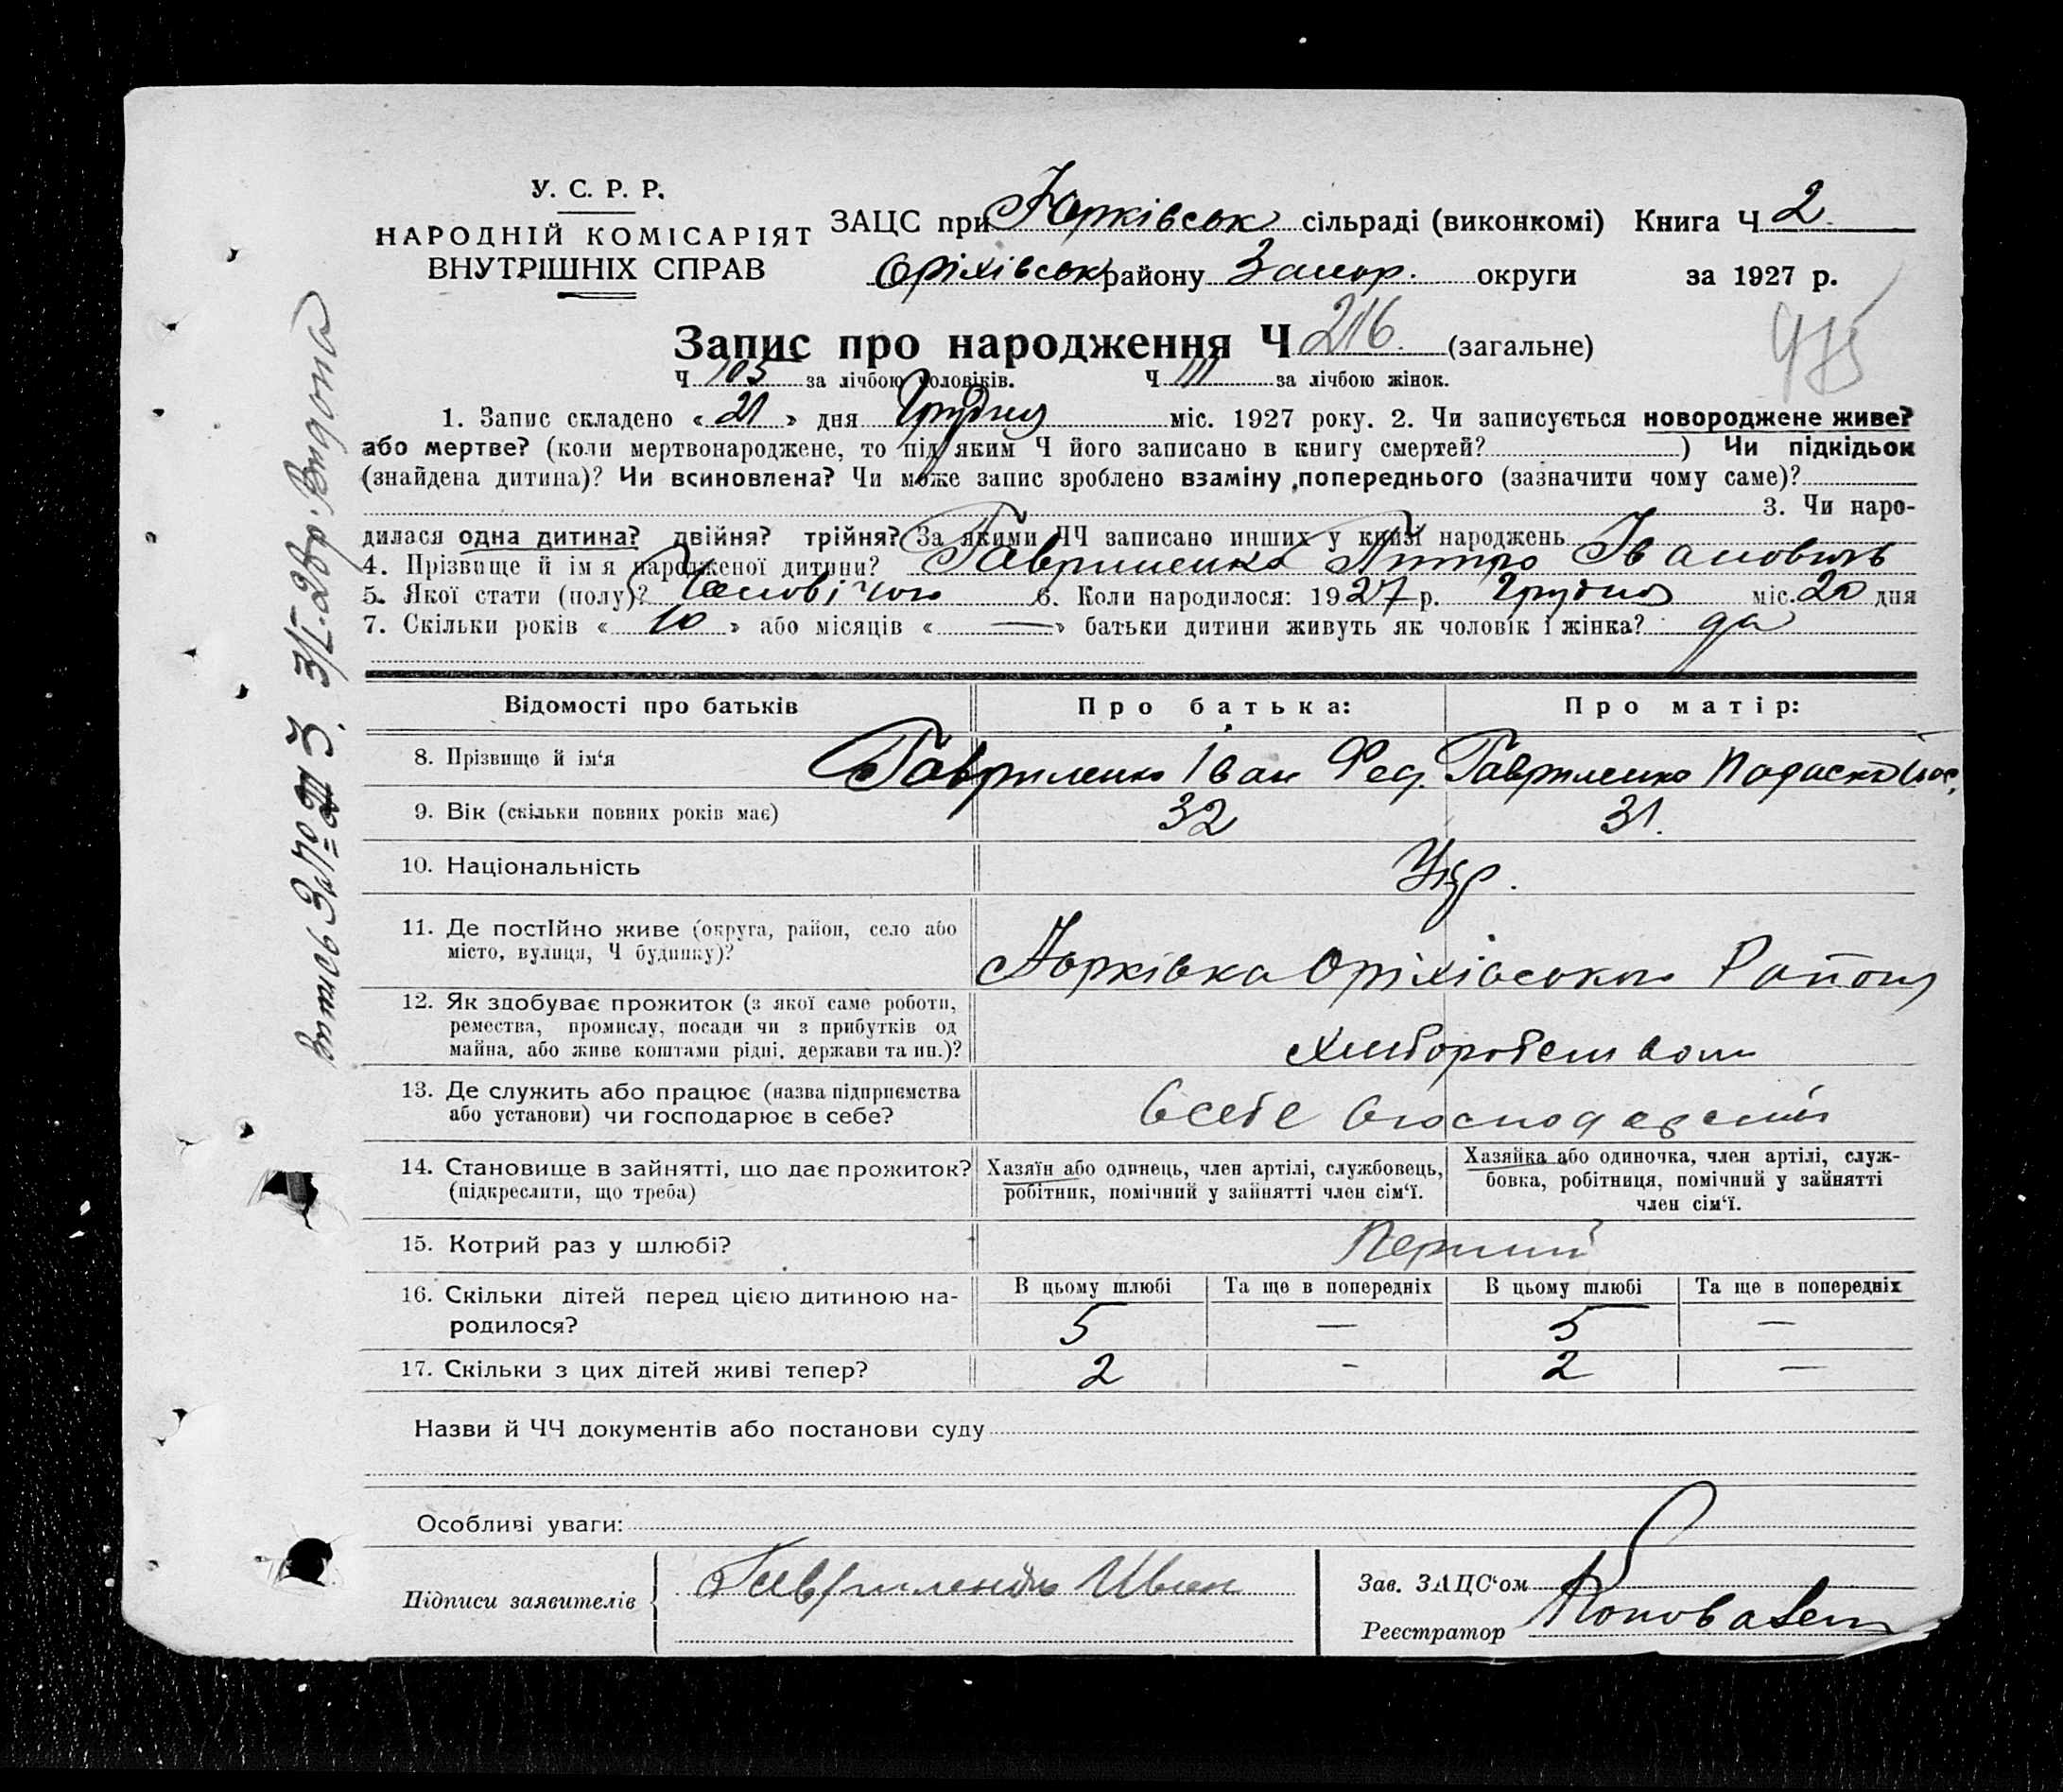 У. С. Р. Р.
НАРОДНІЙ КОМІСАРІЯТ
ВНУТРІШНІХ СПРАВ
ЗАЦС при Юрківськ сільраді (виконкомі) Книга Ч 2
Оріхівськ району Запор. округи за 1927 р.
Запис про народження Ч 216. (загальне)
975
Ч 105 за лічбою чоловіків. Ч 111 за лічбою жінок.
1. Запис складено « 21 » дня Грудня міс. 1927 року. 2. Чи записується новороджене живе?
або мертве? (коли мертвонароджене, то під яким Ч його записано в книгу смертей? ) Чи підкідьок
(знайдена дитина)? Чи всиновлена? Чи може запис зроблено взаміну попереднього (зазначити чому саме)?
3. Чи наро-
дилася одна дитина? двійня? трійня? За якими ЧЧ записано инших у книзі народжень
4. Прізвище й ім'я народженої дитини? Гавриленко Петро Іванович
5. Якої стати (полу)? Чоловічого 6. Коли народилося: 1927 р. Грудня міс. 20 дня
7. Скільки років « 10 » або місяців « — » батьки дитини живуть як чоловік і жінка? да
Відомості про батьків Про батька: Про матір:
8. Прізвище й ім'я Гавриленко Іван Фед. Гавриленко
9. Вік (скільки повних років має) 32 31.
10. Національність Укр.
11. Де постійно живе (округа, район, село або
місто, вулиця, Ч будинку)? Юрківка Оріхівського Району
12. Як здобуває прожиток (з якої саме роботи,
ремества, промислу, посади чи з прибутків од
майна, або живе коштами рідні, держави та ин.)? Хліборобством
13. Де служить або працює (назва підприємства
або установи) чи господарює в себе? в себе в господарстві
14. Становище в зайнятті, що дає прожиток?
(підкреслити, що треба)
Хазяїн або одинець, член артілі, службовець,
робітник, помічний у зайнятті член сім'ї.
Хазяйка або одиночка, член артілі, служ-
бовка, робітниця, помічний у зайнятті
член сім'ї.
15. Котрий раз у шлюбі? Перший
16. Скільки дітей перед цією дитиною на-
родилося?
В цьому шлюбі Та ще в попередніх В цьому шлюбі Та ще в попередніх
5 — 5 —
17. Скільки з цих дітей живі тепер? 2 - 2 —
Назви й ЧЧ документів або постанови суду
Особливі уваги:
Підписи заявителів Гавриленко Иван
Зав. ЗАЦС'ом
Реєстратор Коновалец